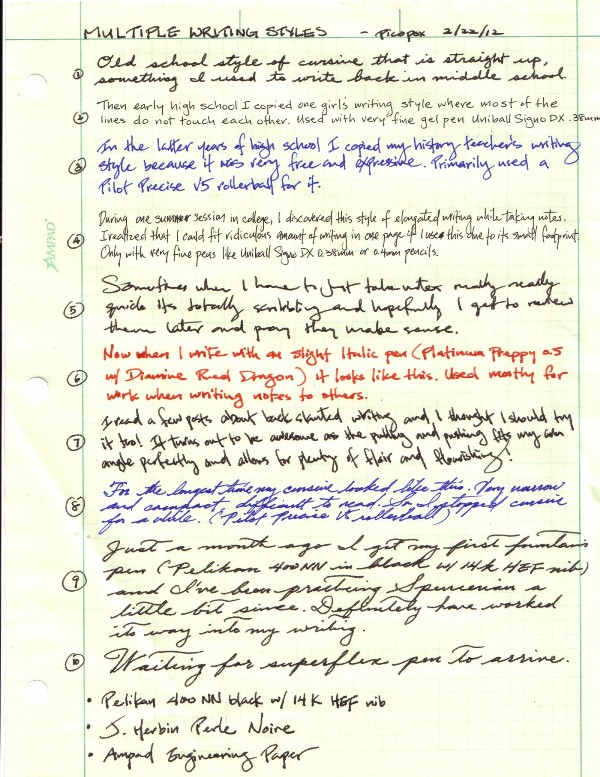 MULTIPLE WRITING STYLES - picopox 2/22/12
① Old school style of cursive that is straight up,
something I used to write back in middle school
② Then early high school I copied one girl's writing style where most of the
lines do not touch each other. Used with very fine gel pen Uniball Signo DX .38mm
③ In the latter years of high school I copied my history teacher's writing
style because it was very free and expressive. Primarily used a
Pilot Precise V5 rollerball for it.
④ During one summer session in college, I discovered this style of elongated writing while taking notes.
I realized that I could fit ridiculous amount of writing in one page if I used this due to its small footprint.
Only with very fine pens like Uniball Signo DX 0.38mm or 0.4mm pencils.
⑤ Sometimes when I have to just take notes really really
quick its totally scribbling and hopefully I get to review
them later and pray they make sense.
⑥ Now when I write with an slight Italic pen (Platinum Preppy 0.5
w/ Diamine Red Dragon) it looks like this. Used mostly for
work when writing notes to others.
⑦ I read a few posts about back slanted writing and I thought I should try
it too! It turns out to be awesome as the pulling and pushing fits my own
angle perfectly and allows for plenty of flair and flourishing!
⑧ For the longest time my cursive looked like this. Very narrow
and compact, difficult to read. So I stopped cursive
for a while. (Pilot Precise V5 rollerball)
⑨ Just a month ago I got my first fountain
pen (Pelikan 400NN in black w/ 14K HEF nib)
and I've been practicing Spencerian a
little bit since. Definitely have worked
its way into my writing.
⑩ Waiting for superflex pen to arrive.
• Pelikan 400NN black w/ 14K HEF nib
• J. Herbin Perle Noire
• Ampad Engineering Paper
AMPAD